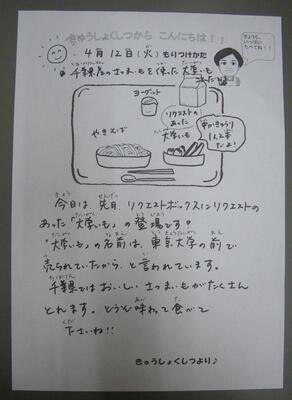 きゅうしょくしつから こんにちは!!
きょうも、
いっぱい
たべてね!!
4月12日(火)もりつけかた
千葉県産のさつまいもを使った大学いも
ヨーグルト
やきそば
リクエストの
あった
大学いも
1人2本
だよ!
今日は、先月、リクエストボックスにリクエストの
あった「大学いも」の登場です!
「大学いも」の名前は、東京大学の前で
売られていたから、と言われています。
千葉県ではおいしいさつまいもがたくさん
とれます。どうぞ味わって食べて
下さいね!!
きゅうしょくしつより♪